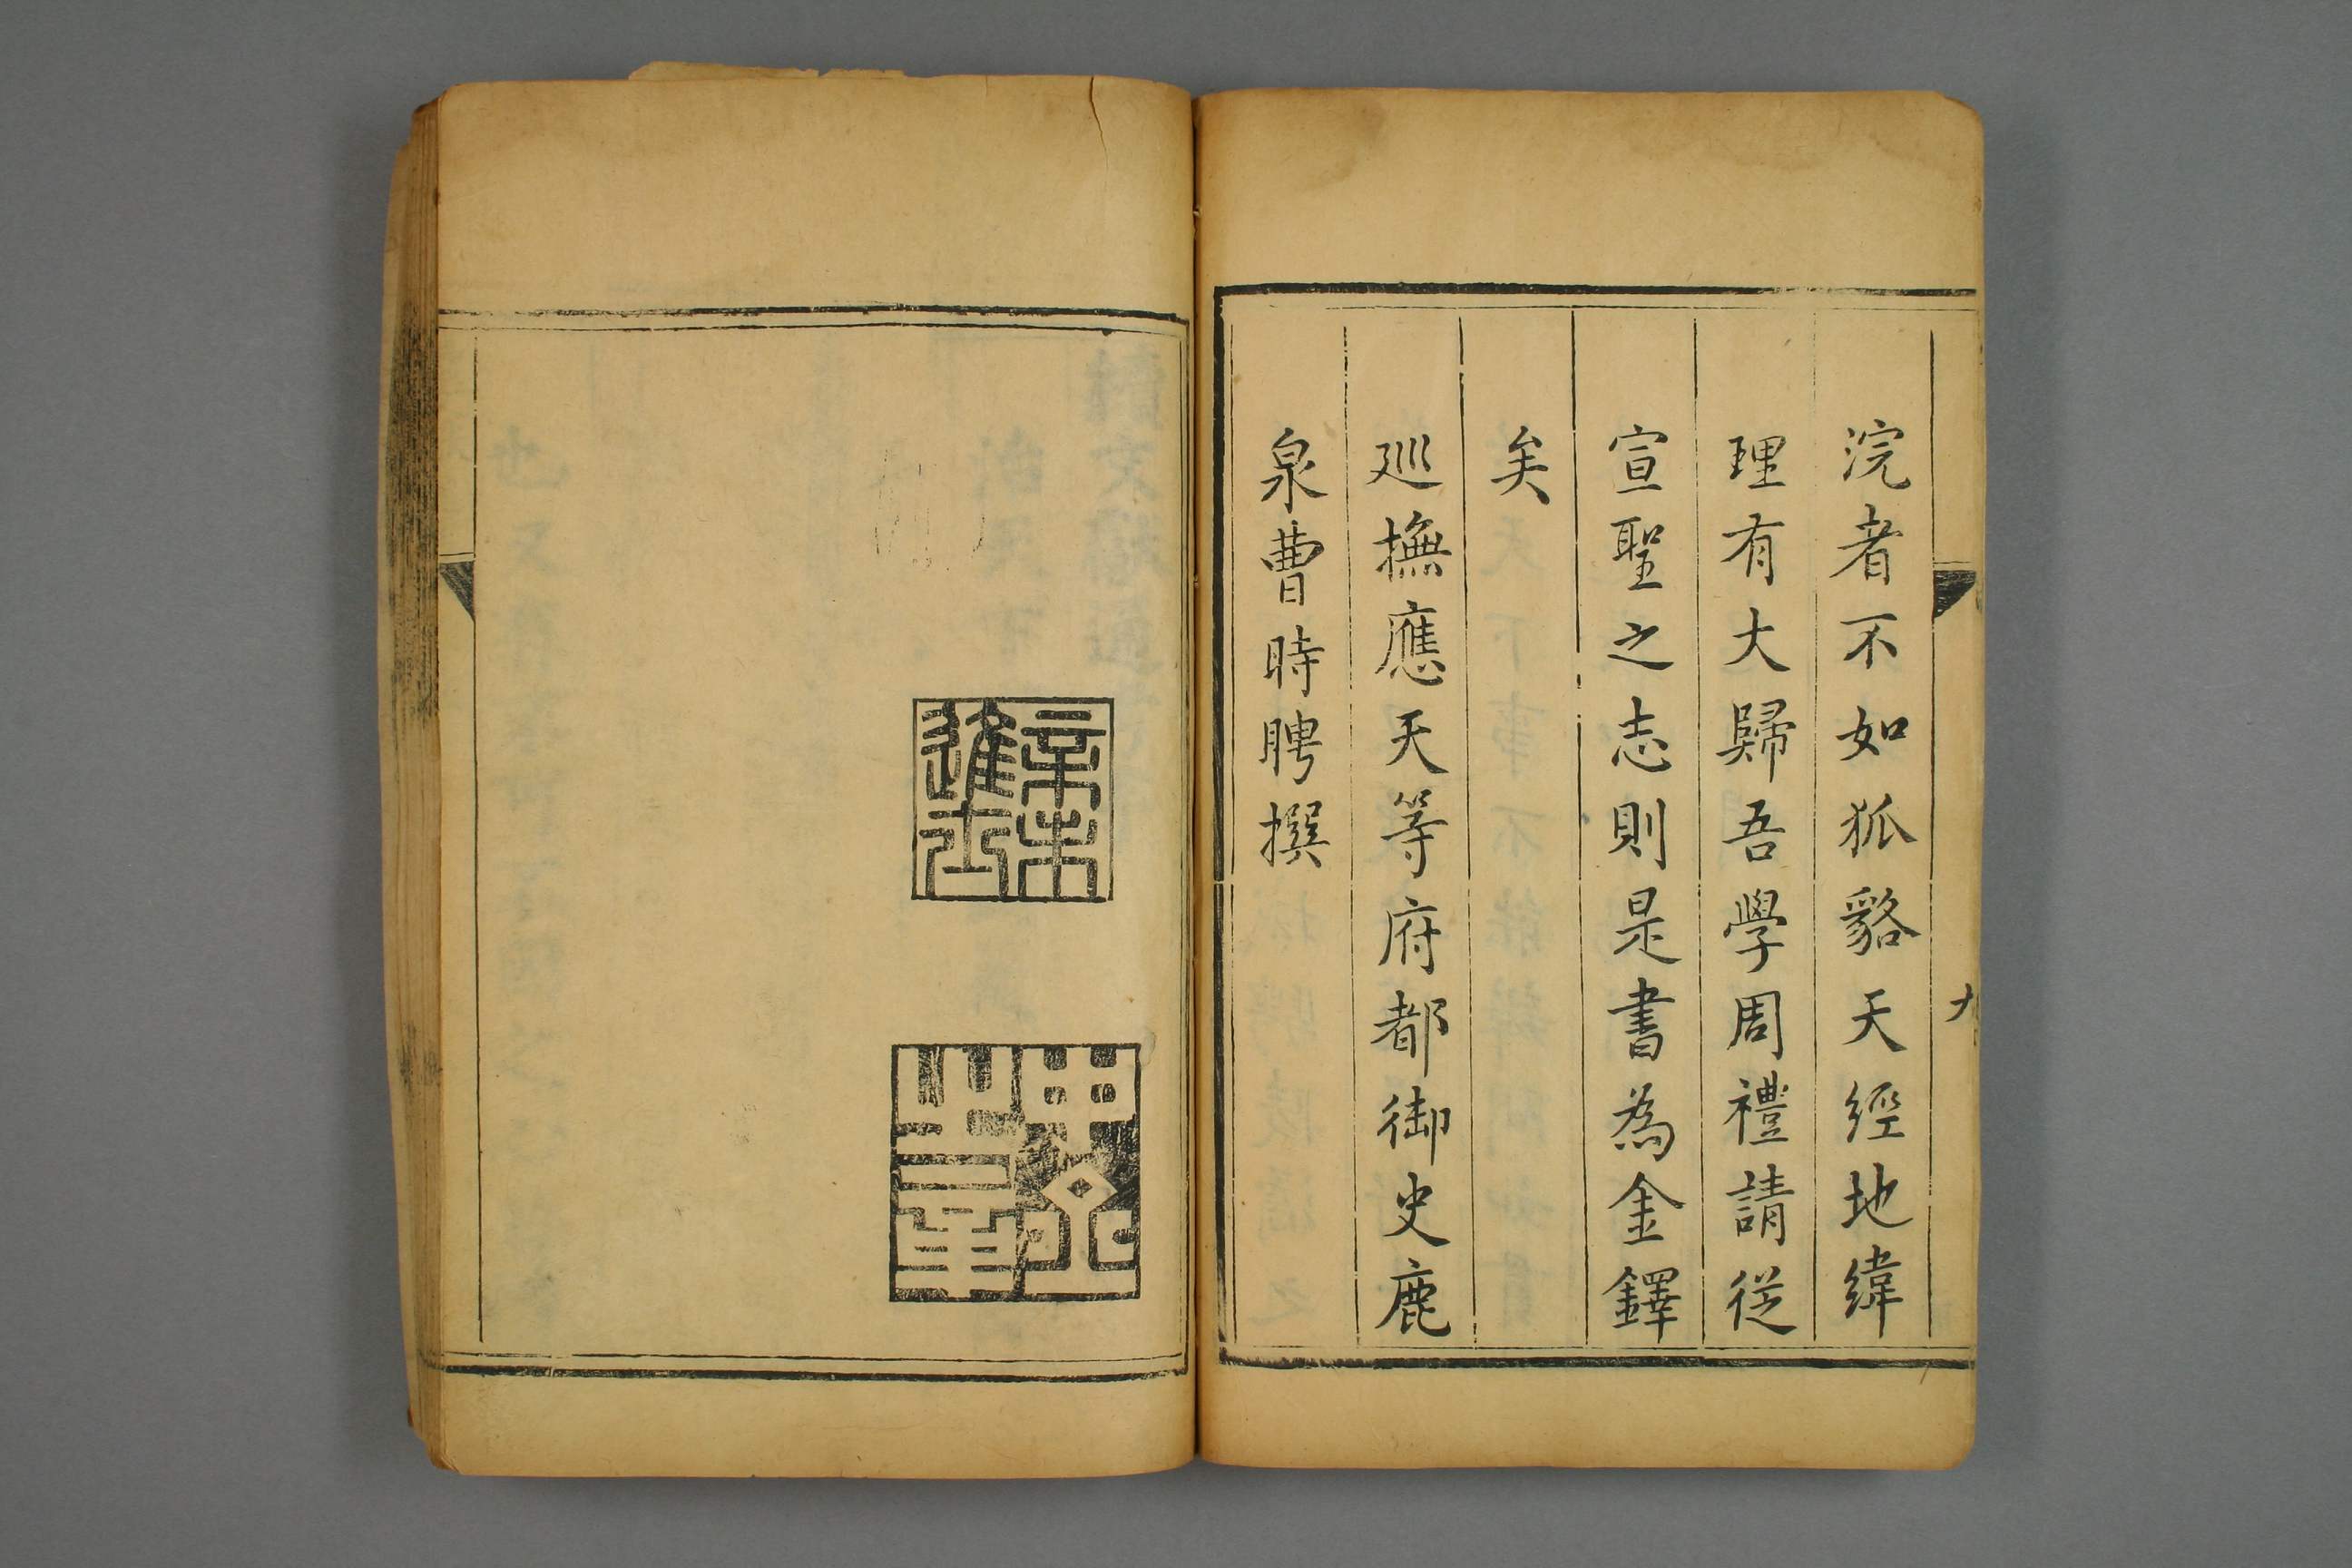 浣者不如狐貉天經地緯
理有大歸吾學周禮請從
宣聖之志則是書為金鐸
矣
廵撫應天等府都御史鹿
泉曹時聘撰
辛未
進士